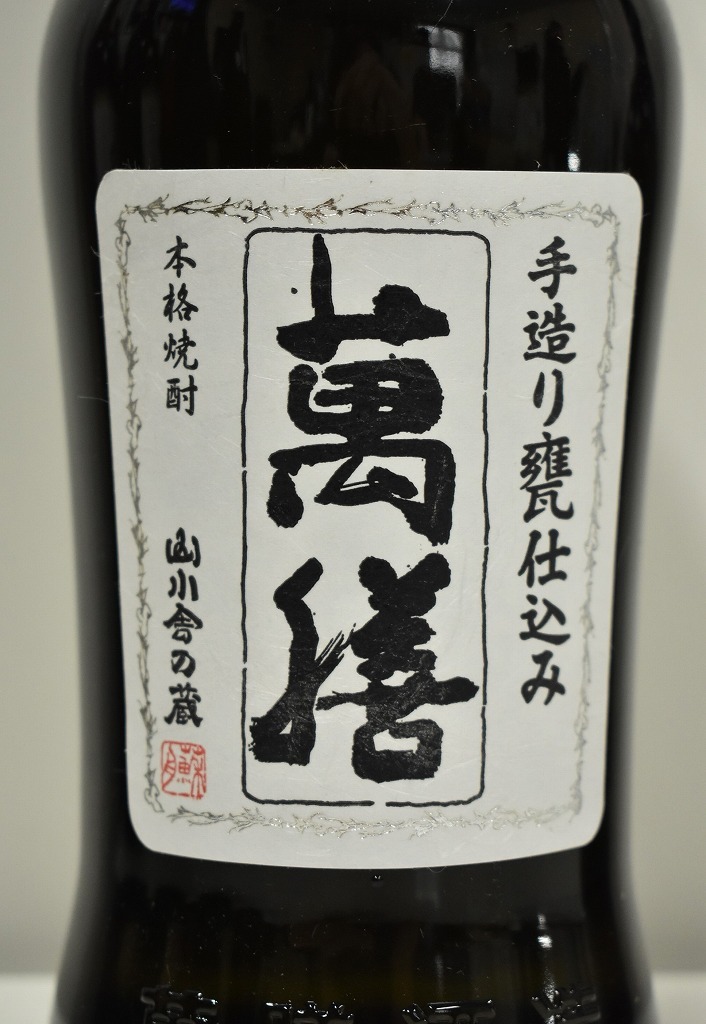 手造り甕仕込み
萬膳
本格焼酎
山小舎の蔵